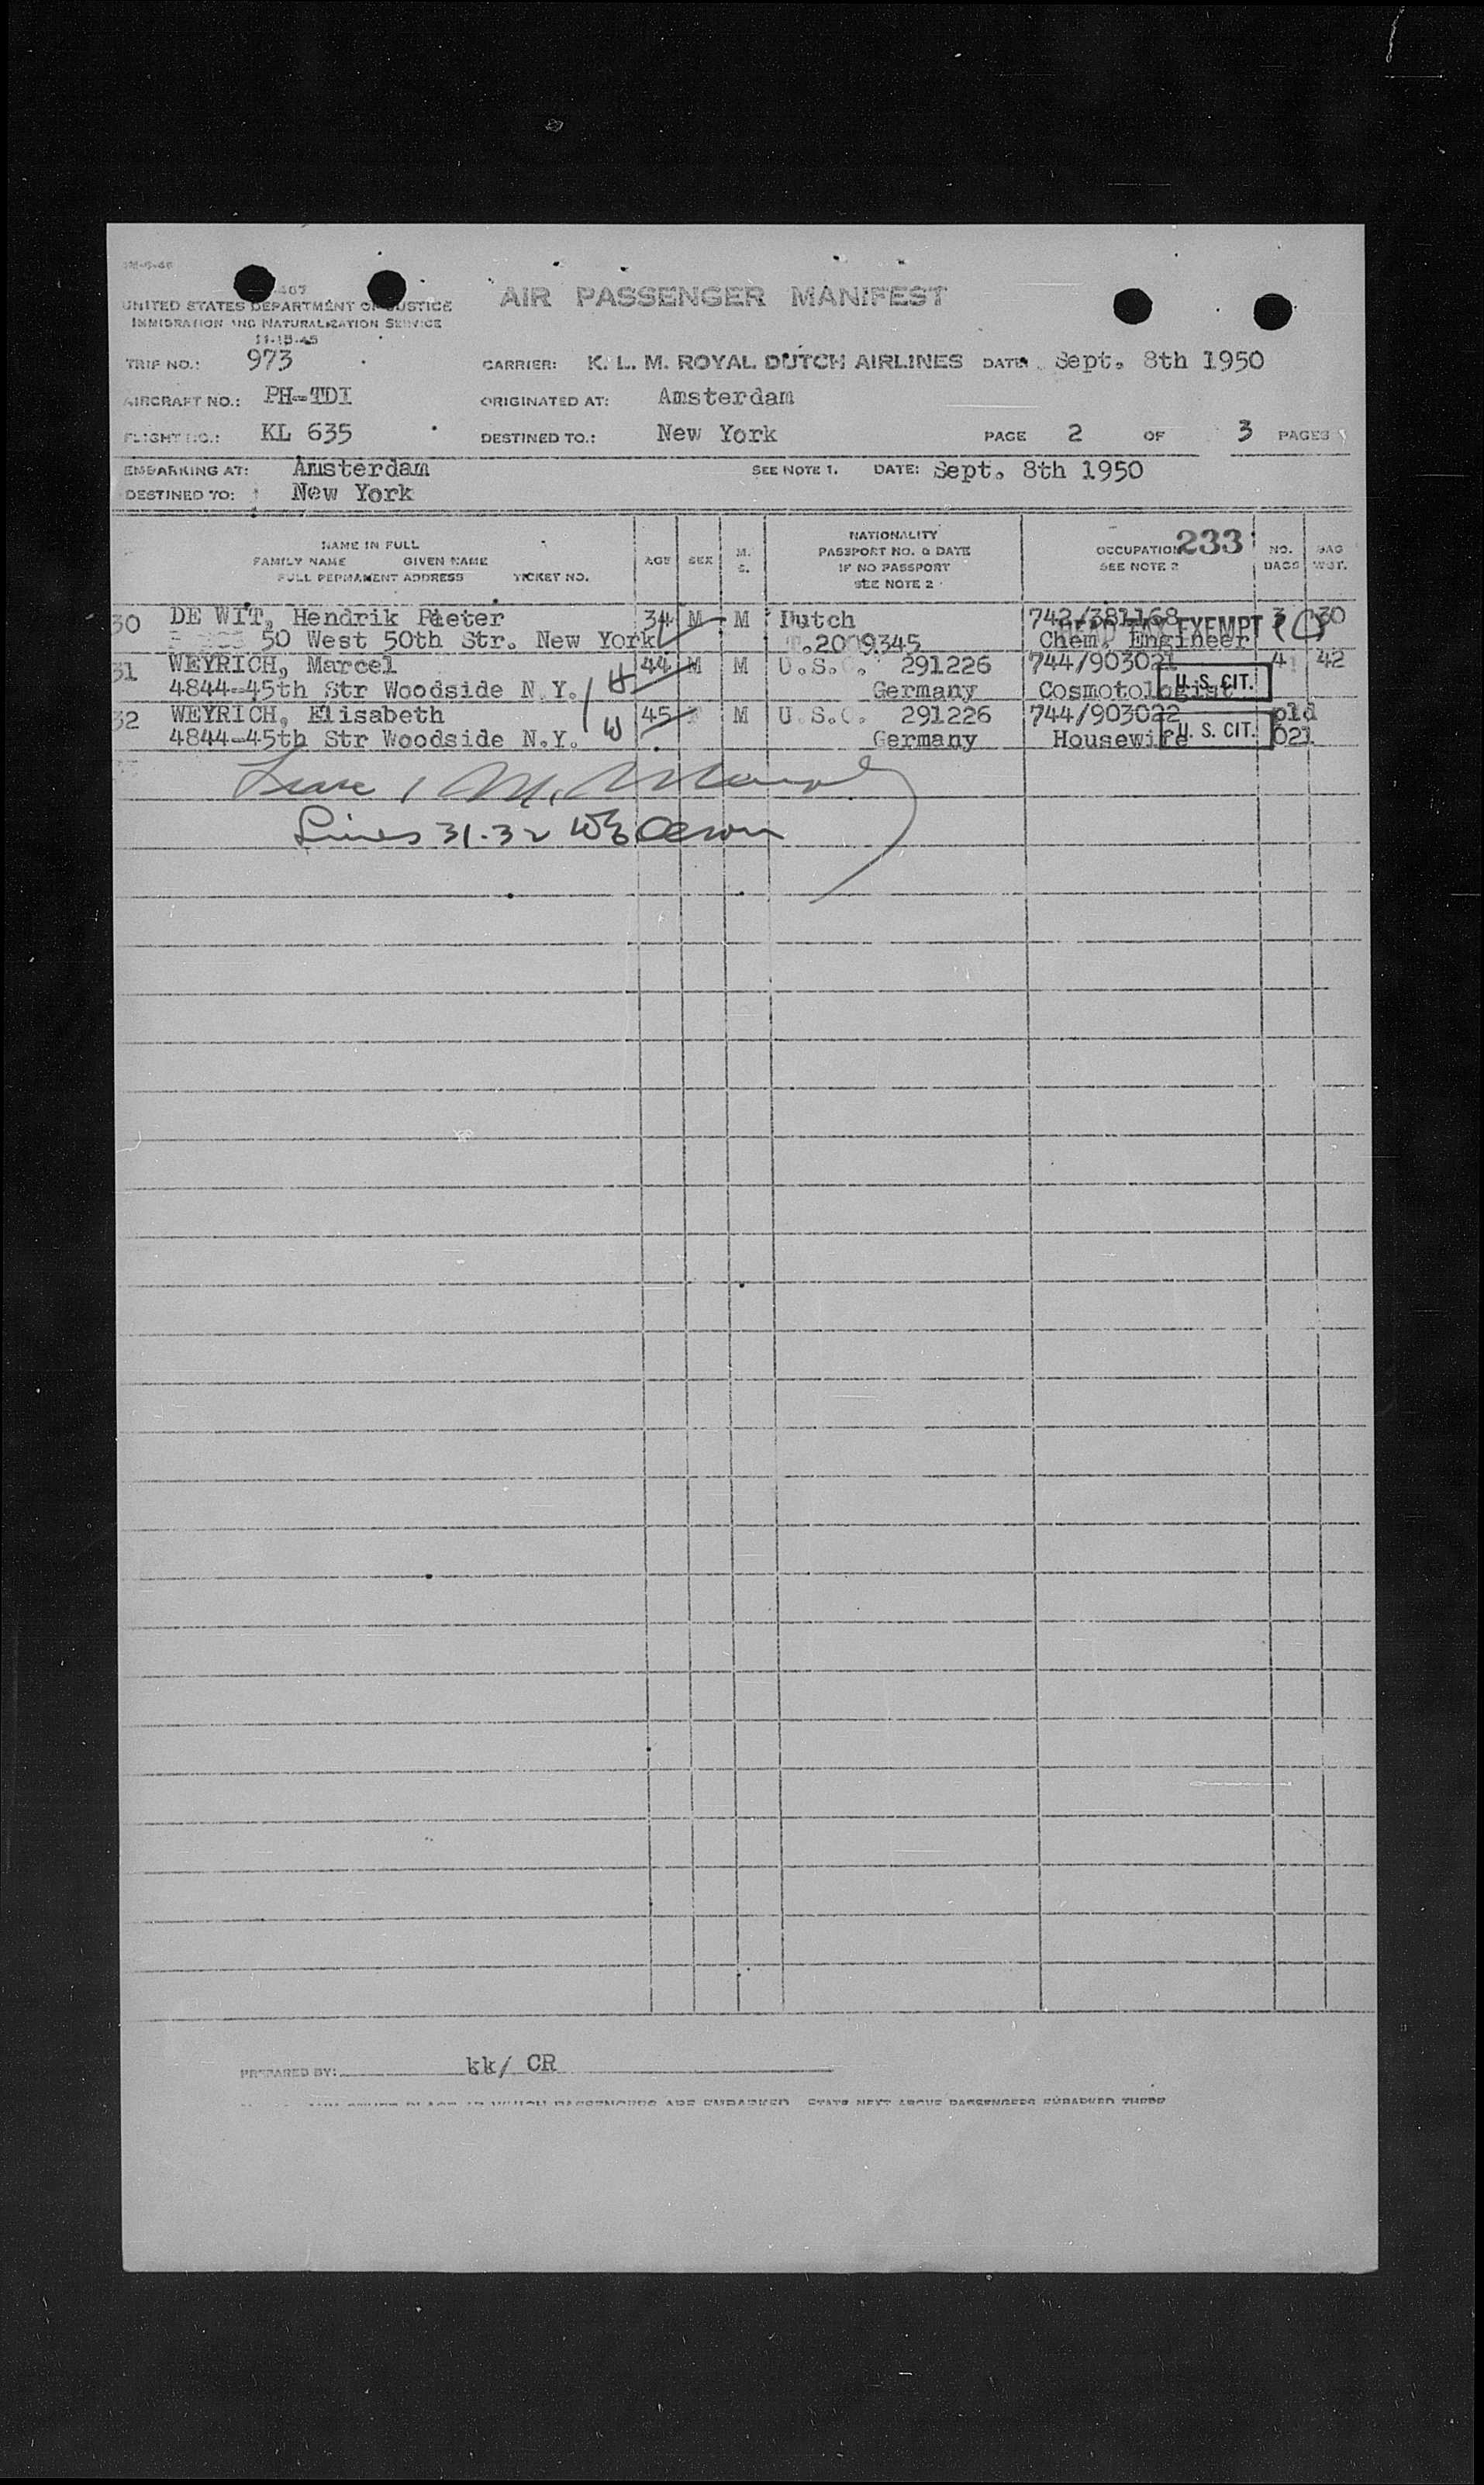 UNITED STATES DEPARTMENT OF JUSTICE
IMMIGRATION AND NATURALIZATION SERVICE
11-15-45
AIR PASSENGER MANIFEST
TRIP NO.: 973 CARRIER: K. L. M. ROYAL DUTCH AIRLINES DATE Sept. 8th 1950
AIRCRAFT NO.: PH-TDI ORIGINATED AT: Amsterdam
FLIGHT NO.: KL 635 DESTINED TO.: New York PAGE 2 OF 3 PAGES
EMBARKING AT: Amsterdam SEE NOTE 1. DATE: Sept. 8th 1950
DESTINED TO: New York
NAME IN FULL
FAMILY NAME GIVEN NAME
FULL PERMANENT ADDRESS TICKET NO.
AGE SEX M. S.
NATIONALITY
PASSPORT NO. & DATE
IF NO PASSPORT
SEE NOTE 2
OCCUPATION 233
SEE NOTE 2
NO. BAGS
BAG WGT.
30 DE WIT, Hendrik Pieter 34 M M Dutch 742/381168 3 30
50 West 50th Str. New York 2009345 Chem. Engineer EXEMPT
31 WEYRICH, Marcel 44 M M U.S.C. 291226 744/903021 4 42
4844-45th Str Woodside N.Y. H Germany Cosmotologist U. S. CIT.
32 WEYRICH, Elisabeth 45 F M U.S.C. 291226 744/903022 pld
4844-45th Str Woodside N.Y. W Germany Housewife U. S. CIT. 021
Lines 31-32
PREPARED BY: kk/ CR
PLACE AT WHICH PASSENGERS ARE EMBARKED STATE NEXT ABOVE PASSENGERS EMBARKED THERE